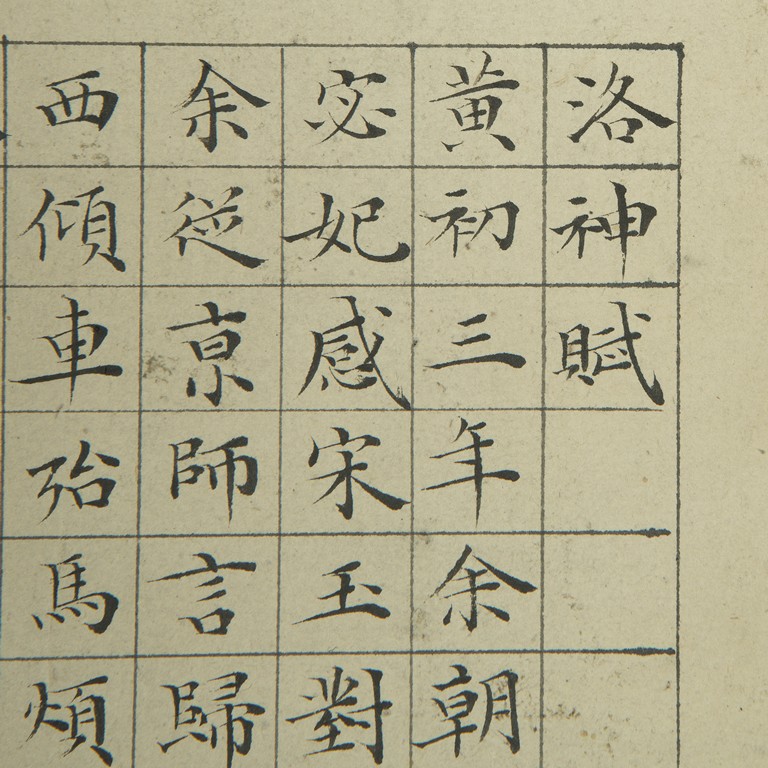 洛神賦
黄初三年余朝
宓妃感宋玉對
余従亰師言歸
西傾車殆馬煩